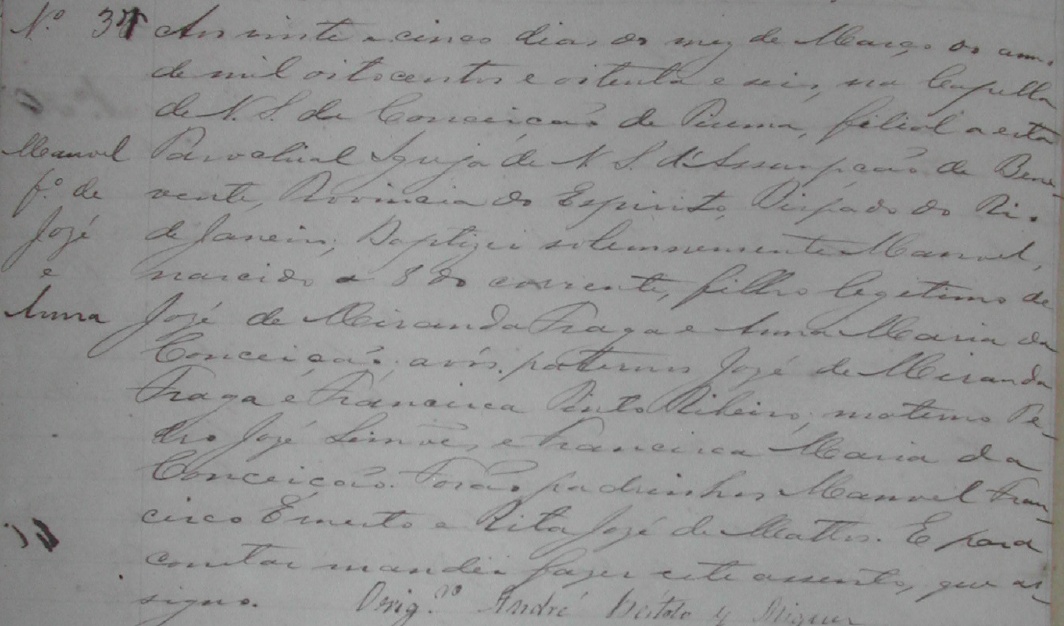 Nº 37 Aos vinte e cinco dias do mez de Março do anno
de mil oitocentos e oitenta e seis, na Capella
de N. S. da Conceicão de Piuma, filial a esta
Manoel Parochial Igreja de N S. d'Assumpcão de Bene-
fº de vente, Provincia do Espirito, Bispado do Rio
José de Janeiro, Baptizei solemnemente Manoel,
e nascido a 8 do corrente, filho legitimo de
Anna José de Miranda Fraga e Anna Maria da
Conceicão: avós paternos José de Miranda
Fraga e Francisca Pinto Ribeiro, materno Pe-
dro José Simões, e Francisca Maria da
Conceicão. Forão padrinhos Manoel Fran-
cisco Ernesto e Rita José de Mattos. E para
constar mandei fazer este assento, que as-
signo. André